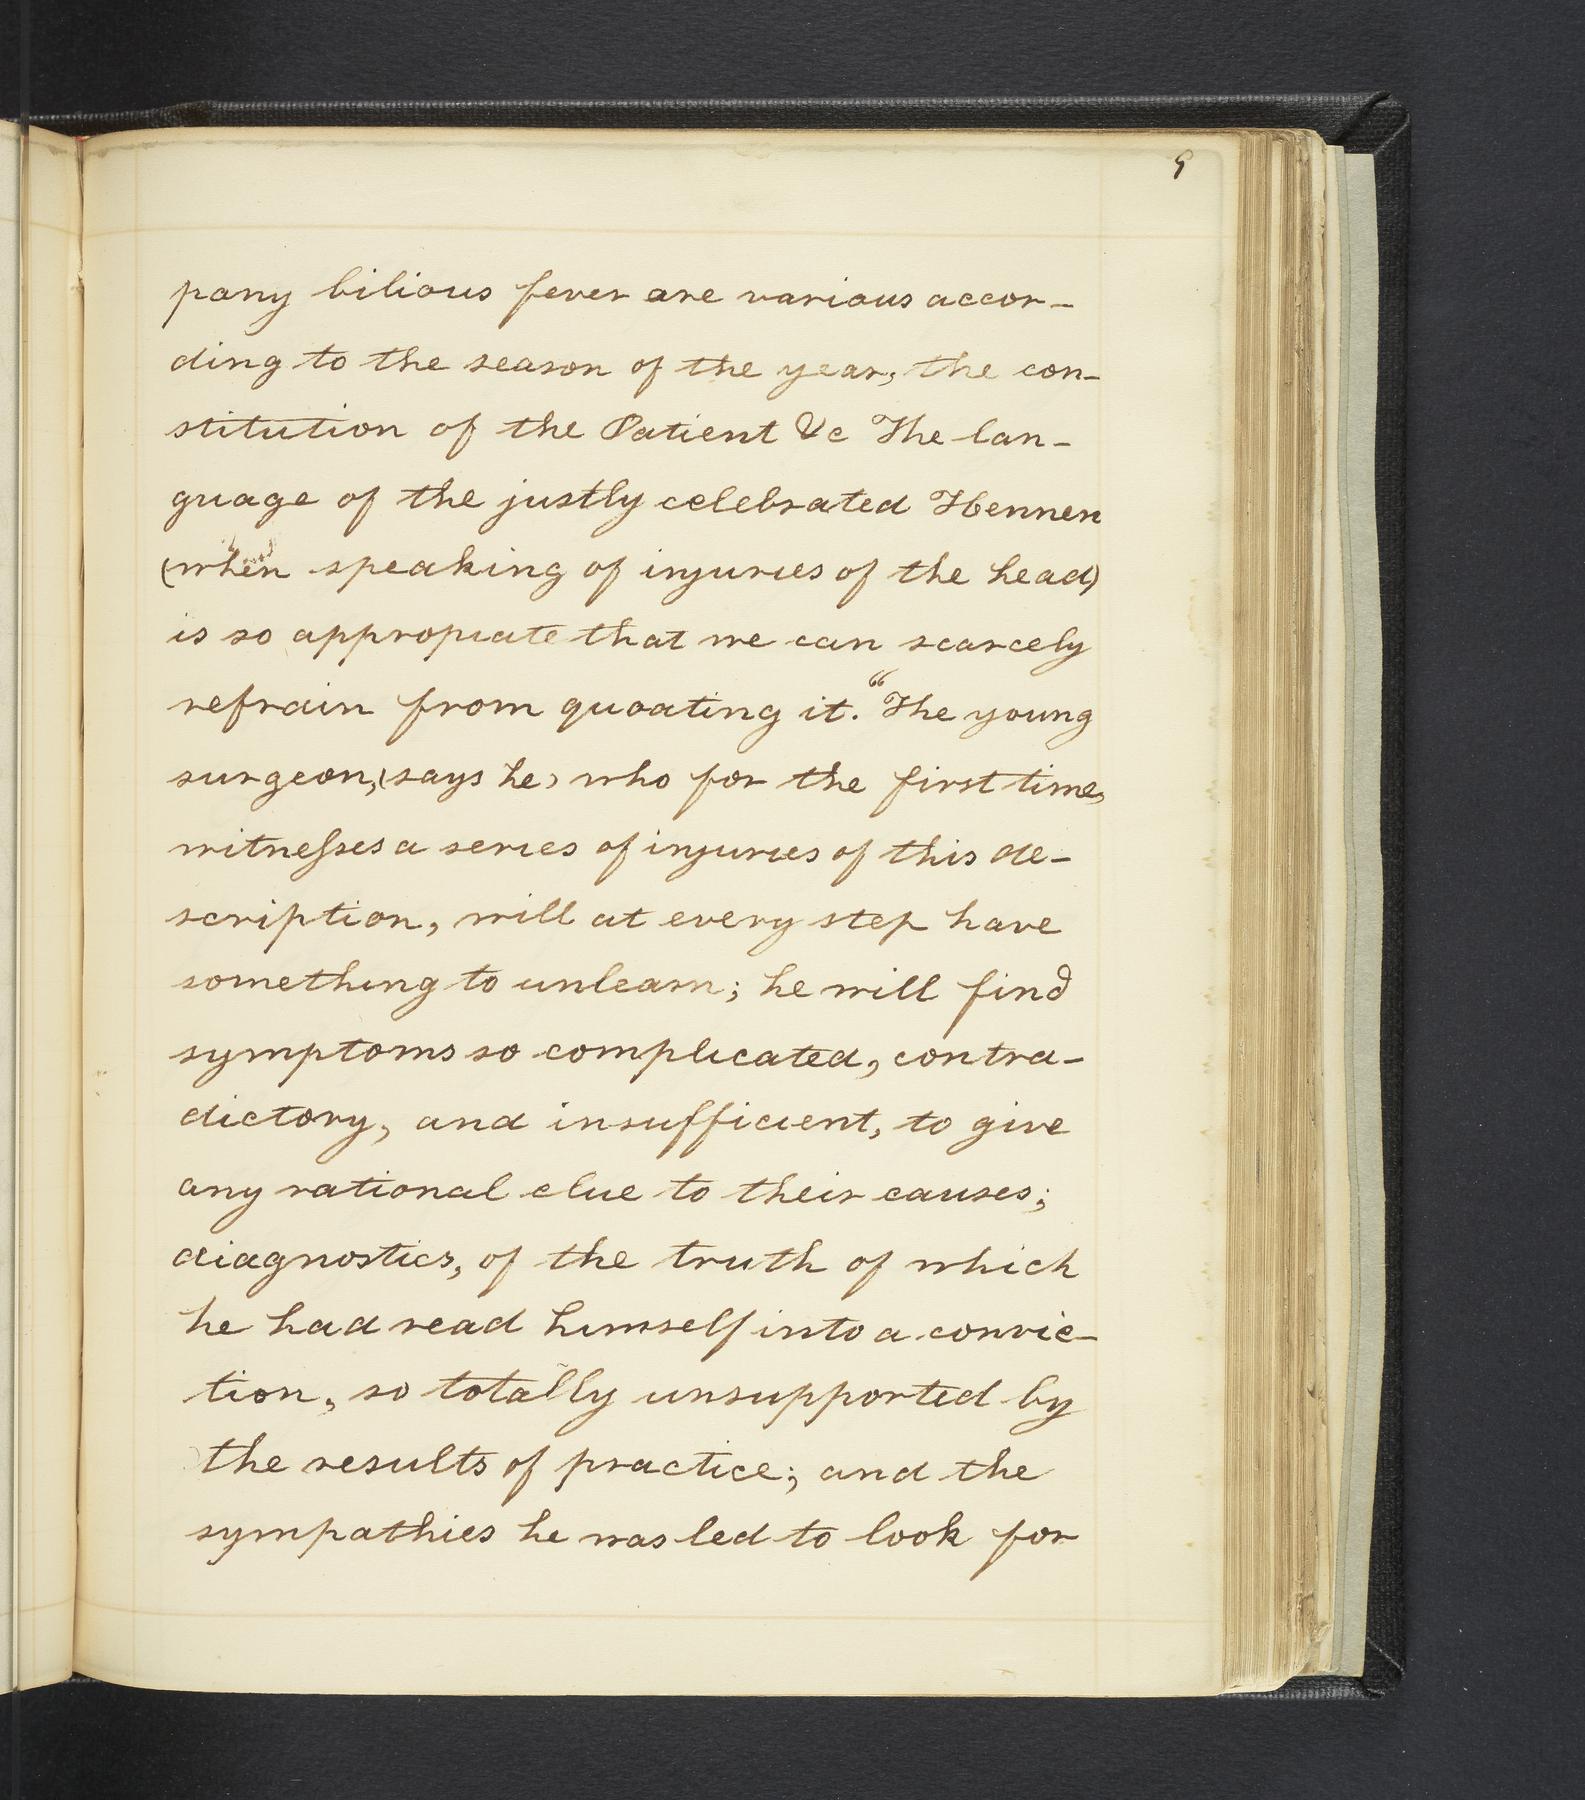 9
pany bilious fever are various accor-
ding to the season of the year, the con-
stitution of the Patient &c The lan-
guage of the justly celebrated Hennen
(when speaking of injuries of the head)
is so appropiate that we can scarcely
refrain from quoating it. "The young
surgeon, (says he) who for the first time,
witnesses a series of injuries of this de-
scription, will at every step have
something to unlearn; he will find
symptoms so complicated, contra-
dictory, and insufficient, to give
any rational clue to their causes;
diagnostics, of the truth of which
he had read himself into a convic-
tion, so totally unsupported by
the results of practice; and the
sympathies he was led to look for